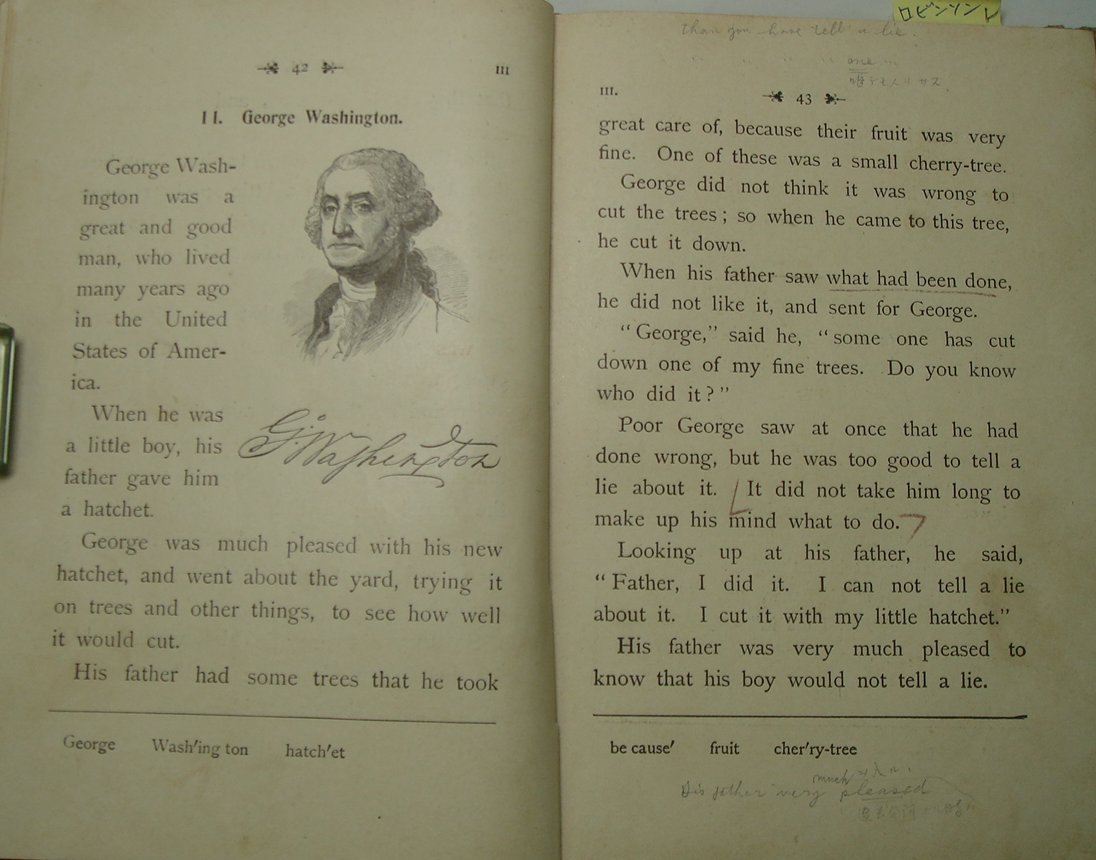 42
III
II. George Washington.
George Wash-
ington was a
great and good
man, who lived
many years ago
in the United
States of Amer-
ica.
When he was
a little boy, his
father gave him
a hatchet.
G. Washington
George was much pleased with his new
hatchet, and went about the yard, trying it
on trees and other things, to see how well
it would cut.
His father had some trees that he took
George Wash′ing ton hatch′et
ロビンソン
than you have tell a lie.
one
III.
43
great care of, because their fruit was very
fine. One of these was a small cherry-tree.
George did not think it was wrong to
cut the trees; so when he came to this tree,
he cut it down.
When his father saw what had been done,
he did not like it, and sent for George.
"George," said he, "some one has cut
down one of my fine trees. Do you know
who did it?"
Poor George saw at once that he had
done wrong, but he was too good to tell a
lie about it. It did not take him long to
make up his mind what to do.
Looking up at his father, he said,
"Father, I did it. I can not tell a lie
about it. I cut it with my little hatchet."
His father was very much pleased to
know that his boy would not tell a lie.
be cause′ fruit cher′ry-tree
much
His father very pleased